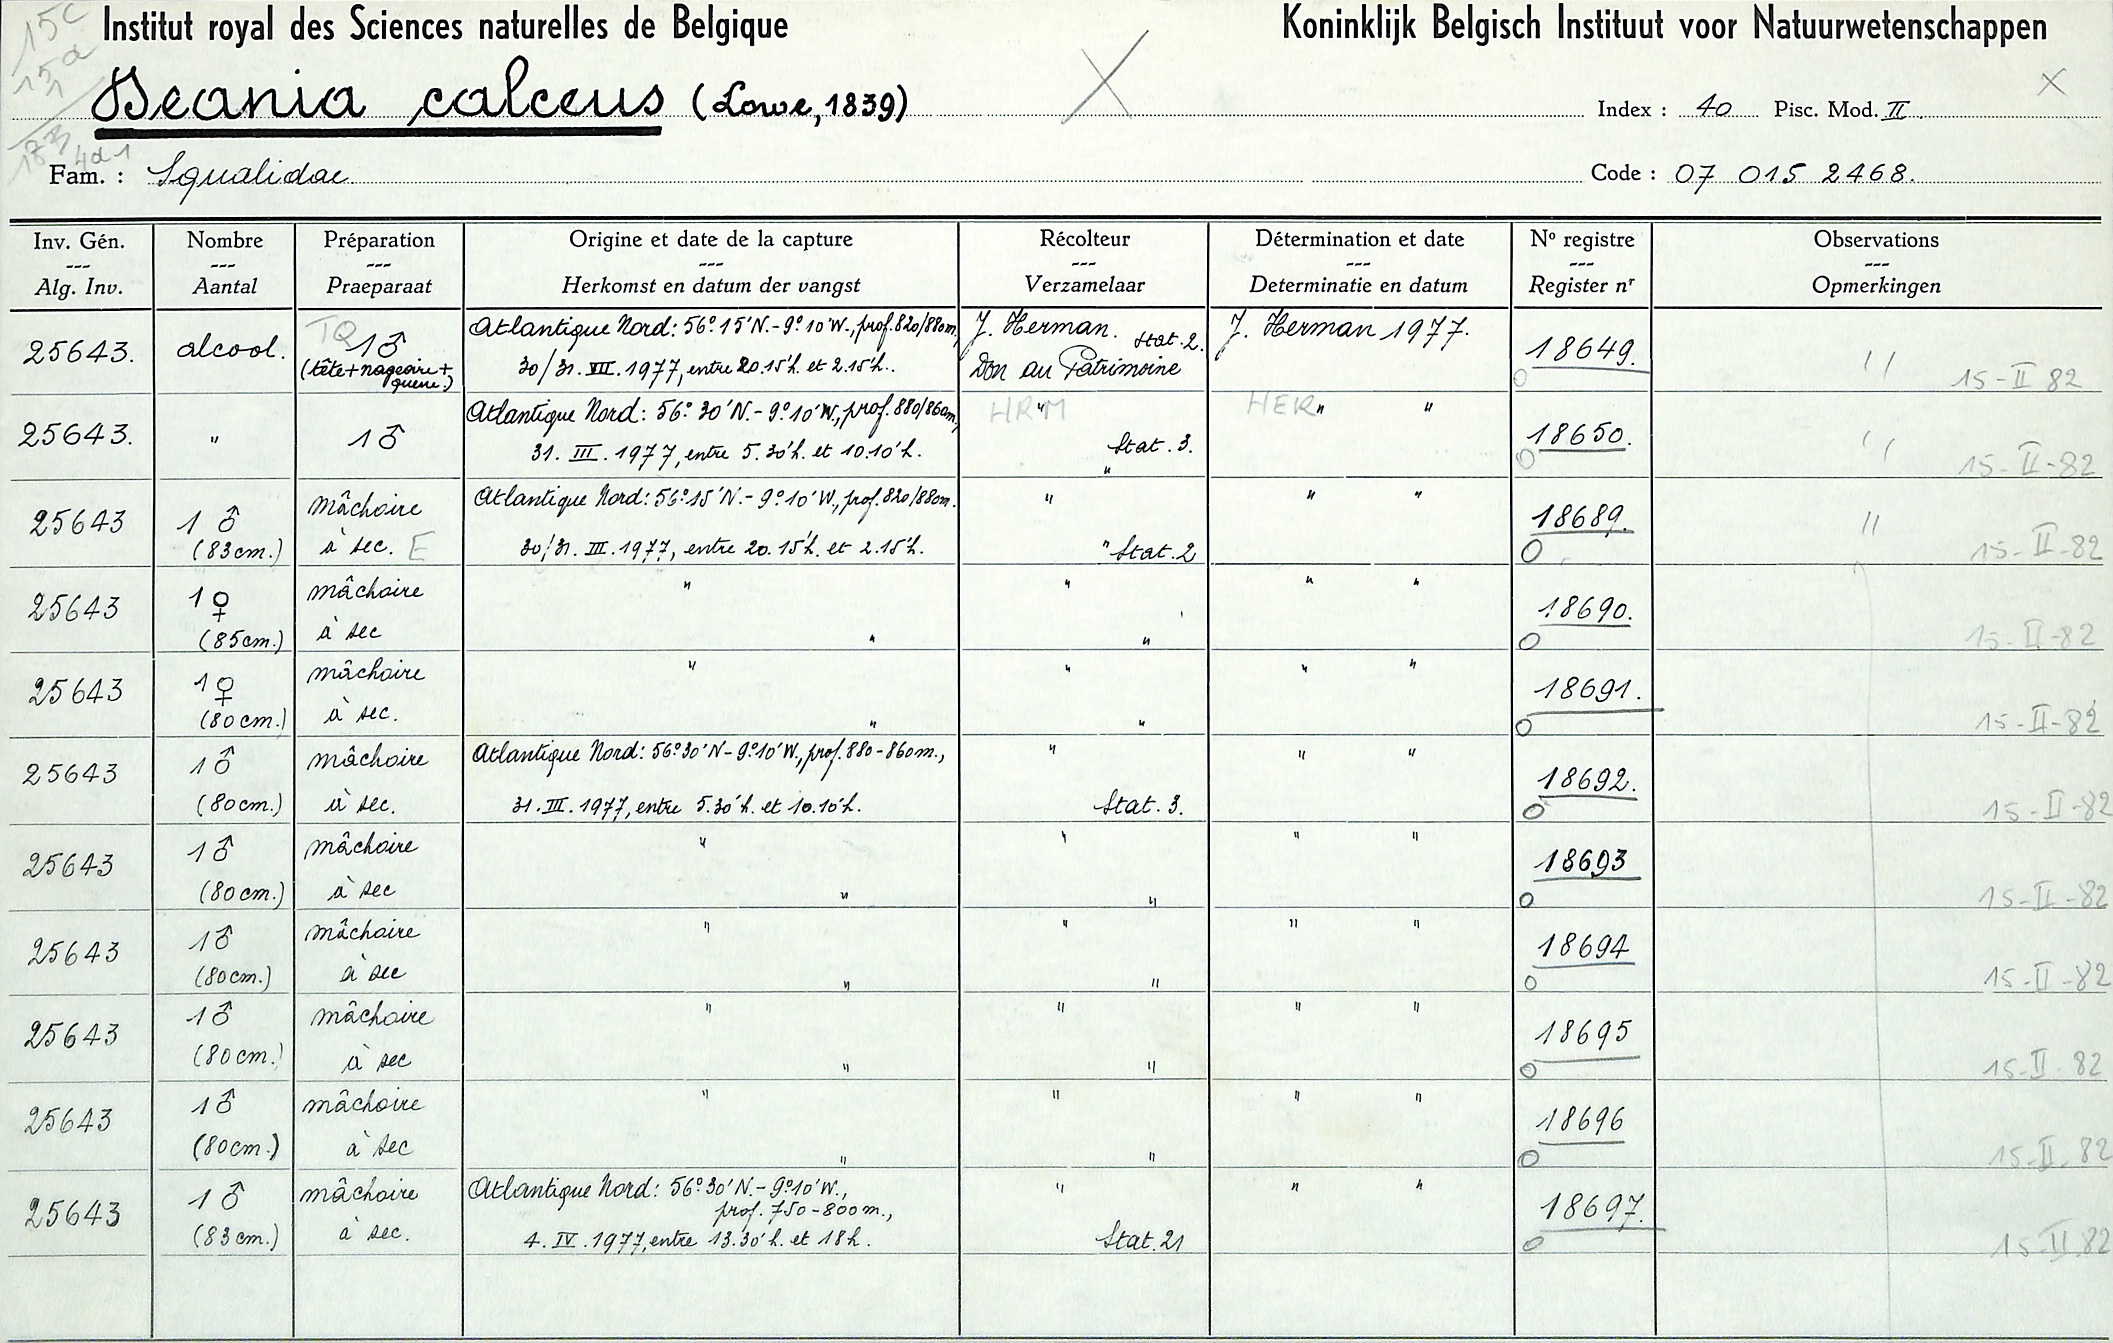 Institut royal des Sciences naturelles de Belgique
Koninklijk Belgisch Instituut voor Natuurwetenschappen
15c
15a
Deania calceus (Lowe, 1839)
X
X
Index : 40 Pisc. Mod. II.
4d1
Fam. : Squalidae
Code : 07 015 2468.
Inv. Gén. Nombre Préparation Origine et date de la capture Récolteur Détermination et date Nº registre Observations
--- --- --- --- --- --- --- ---
Alg. Inv. Aantal Praeparaat Herkomst en datum der vangst Verzamelaar Determinatie en datum Register nr Opmerkingen
25643. alcool. TQ 1♂ (tête+nageoire+queue.) Atlantique Nord: 56°15'N.-9°10'W., prof. 820/880m,
30/31. VII. 1977, entre 20.15'h. et 2.15'h. J. Herman. Stat. 2. Don au Patrimoine J. Herman 1977. 18649. 15-II 82
25643. " 1♂ Atlantique Nord: 56°30'N.-9°10'W., prof. 880/860m.,
31. III. 1977, entre 5.30'h. et 10.10'h. HRM " Stat. 3. " HER " " 18650. 15-II-82
25643 1♂ (83cm.) mâchoire à sec. E Atlantique Nord: 56°15'N.-9°10'W., prof. 820/880m.
30/31. III. 1977, entre 20.15'h. et 2.15'h. " " Stat. 2 " " 18689. 15-II-82
25643 1♀ (85cm.) mâchoire à sec " " " " " " 18690. 15-II-82
25643 1♀ (80cm.) mâchoire à sec. " " " " " " 18691. 15-II-82
25643 1♂ (80cm.) mâchoire à sec. Atlantique Nord: 56°30'N-9°10'W., prof. 880-860m.,
31. III. 1977, entre 5.30'h. et 10.10'h. " Stat. 3. " " 18692. 15-II-82
25643 1♂ (80cm.) mâchoire à sec " " " " " " 18693 15-II-82
25643 1♂ (80cm.) mâchoire à sec " " " " " " 18694 15-II-82
25643 1♂ (80cm.) mâchoire à sec " " " " " " 18695 15-II-82
25643 1♂ (80cm.) mâchoire à sec " " " " " " 18696 15-II-82
25643 1♂ (83cm.) mâchoire à sec. Atlantique Nord: 56°30'N.-9°10'W.,
prof. 750-800m.,
4. IV. 1977, entre 13.30'h. et 18h. " Stat. 21 " " 18697. 15-II.82